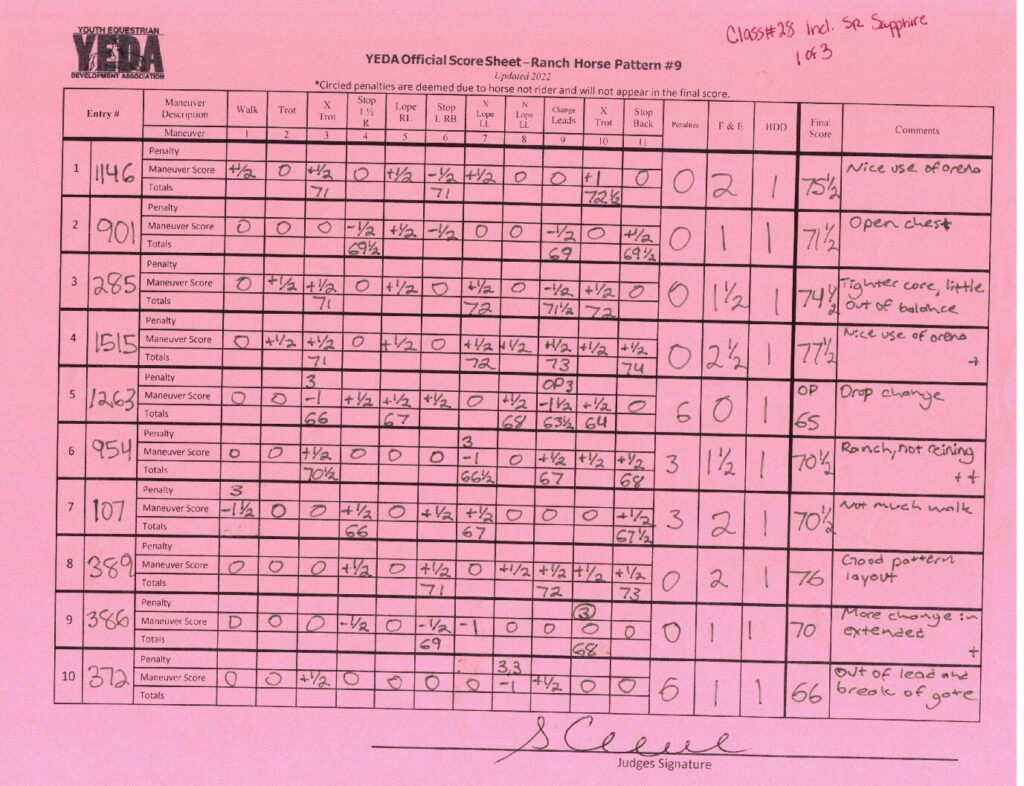 Class#28 Incl. SR Sapphire
1 of 3
YOUTH EQUESTRIAN
YEDA
DEVELOPMENT ASSOCIATION
YEDA Official Score Sheet–Ranch Horse Pattern #9
Updated 2022
*Circled penalties are deemed due to horse not rider and will not appear in the final score.
Entry # Maneuver Description Walk Trot X Trot Stop 1 ½ R Lope RL Stop L RB X Lope LL N Lope LL Change Leads X Trot Stop Back Penalties F & E HDD Final Score Comments
Maneuver 1 2 3 4 5 6 7 8 9 10 11
Penalty
1 1146 Maneuver Score +½ 0 +½ 0 +½ -½ +½ 0 0 +1 0 0 2 1 75½ Nice use of arena
Totals 71 71 72½
Penalty
2 901 Maneuver Score 0 0 0 -½ +½ -½ 0 0 -½ 0 +½ 0 1 1 71½ Open chest
Totals 69½ 69 69½
Penalty
3 285 Maneuver Score 0 +½ +½ 0 +½ 0 +½ 0 -½ +½ 0 0 1½ 1 74½ Tighter core, little out of balance
Totals 71 72 71½ 72
Penalty
4 1515 Maneuver Score 0 +½ +½ 0 +½ 0 +½ +½ +½ +½ +½ 0 2½ 1 77½ Nice use of arena +
Totals 71 72 73 74
Penalty 3 OP3
5 1263 Maneuver Score 0 0 -1 +½ +½ +½ 0 +½ -1½ +½ 0 6 0 1 OP 65 Drop change
Totals 66 67 68 63½ 64
Penalty 3
6 954 Maneuver Score 0 0 +½ 0 0 0 -1 0 +½ +½ +½ 3 1½ 1 70½ Ranch, not reining ++
Totals 70½ 66½ 67 68
Penalty 3
7 107 Maneuver Score -1½ 0 0 +½ 0 +½ +½ 0 0 0 +½ 3 2 1 70½ Not much walk
Totals 66 67 67½
Penalty
8 389 Maneuver Score 0 0 0 +½ 0 +½ 0 +½ +½ +½ +½ 0 2 1 76 Good pattern layout
Totals 71 72 73
Penalty 3
9 386 Maneuver Score 0 0 0 -½ 0 -½ -1 0 0 0 0 0 1 1 70 More change in extended +
Totals 69 68
Penalty 3,3
10 372 Maneuver Score 0 0 +½ 0 0 0 0 -1 +½ 0 0 6 1 1 66 Out of lead and break of gate
Totals
Judges Signature